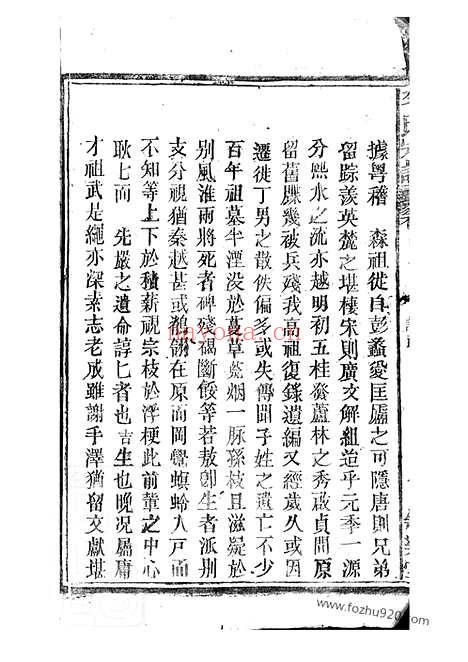 據粤稽 森祖徙自彭蠡愛匡廬之可隱唐則兄弟
留踪羨英麓之堪棲宋則廣文解組迨乎元季一源
分熙水之流亦越明初五桂發蘆林之秀啟貞間原
遷徙丁男之散佚偏多或失傳聞子姓之遺亡不少
留舊牒幾被兵殘我高祖復錄遺編又經歲久或因
百年祖墓半湮没於蔓草荒烟一脉孫枝且滋疑於
别風淮雨將死者碑殘碣斷餒等若敖卽生者派别
支分視猶秦越甚或鶺鴒在原而罔覺螟蛉入戸而
不知等上下於積薪視宗枝於浮梗此前輩之中心
耿七而 先嚴之遺命諄匕者也吉生也晚况屬庸
才祖武是繩亦深素志老成雖謝手澤猶留文獻堪
nayona.cn
www.fozhu920.com